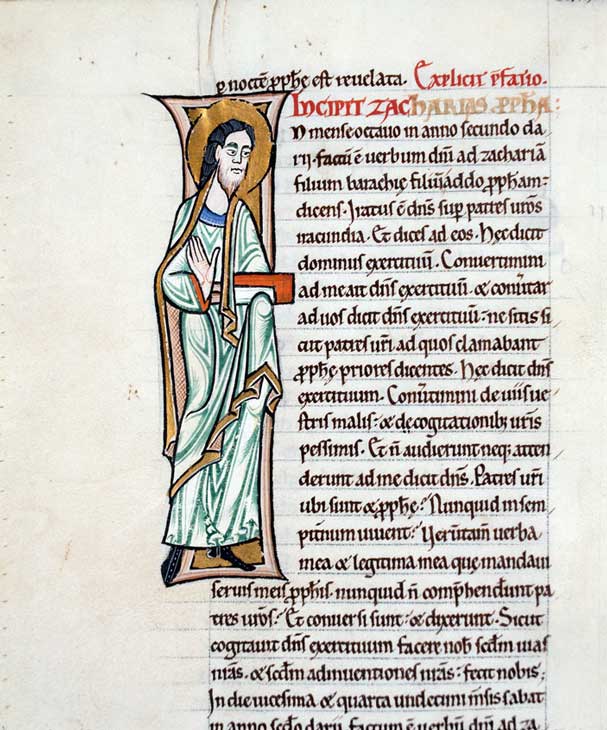 p noctē ꝓphē est reuelata. Explicit p̄fatio.
Incipit zacharias ꝓpha:
N mense octauo in anno secundo da
rij. factū ē uerbum dn̄i ad zachariā
filium barachię filii addo ꝓpham:
dicens. Iratus ē dn̄s sup patres ur̄os
iracundia. Et dices ad eos. Hęc dicit
dominus exercituū. Conuertimini
ad me ait dn̄s exercituū. & conūtar
ad uos dicit dn̄s exercituū: ne sitis si
cut patres ur̄i. ad quos clamabant
ꝓphę priores dicentes. Hęc dicit dn̄s
exercituum. Conūtimini de uiis ue
stris malis: & de cogitationibꝫ ur̄is
pessimis. Et n̄ audierunt neqꝫ atten
derunt ad me dicit dn̄s. Patres ur̄i
ubi sunt & ꝓphę? Nunquid in sem
pitnum uiuent? Uerūtam̄ uerba
mea & legitima mea quę mandaui
seruis meis ꝓphis. nunquid n̄ comp̄hendunt pa
tres ur̄os? Et conuersi sunt: & dixerunt. Sicut
cogitauit dn̄s exercituum facere nob̄ scd̄m uias
nr̄as. & scd̄m adinuentiones nr̄as: fecit nobis.
In die uicesima & quarta undecimi m̄sis sabat
in anno scd̄o darij. factum ē uerbū dn̄i ad za